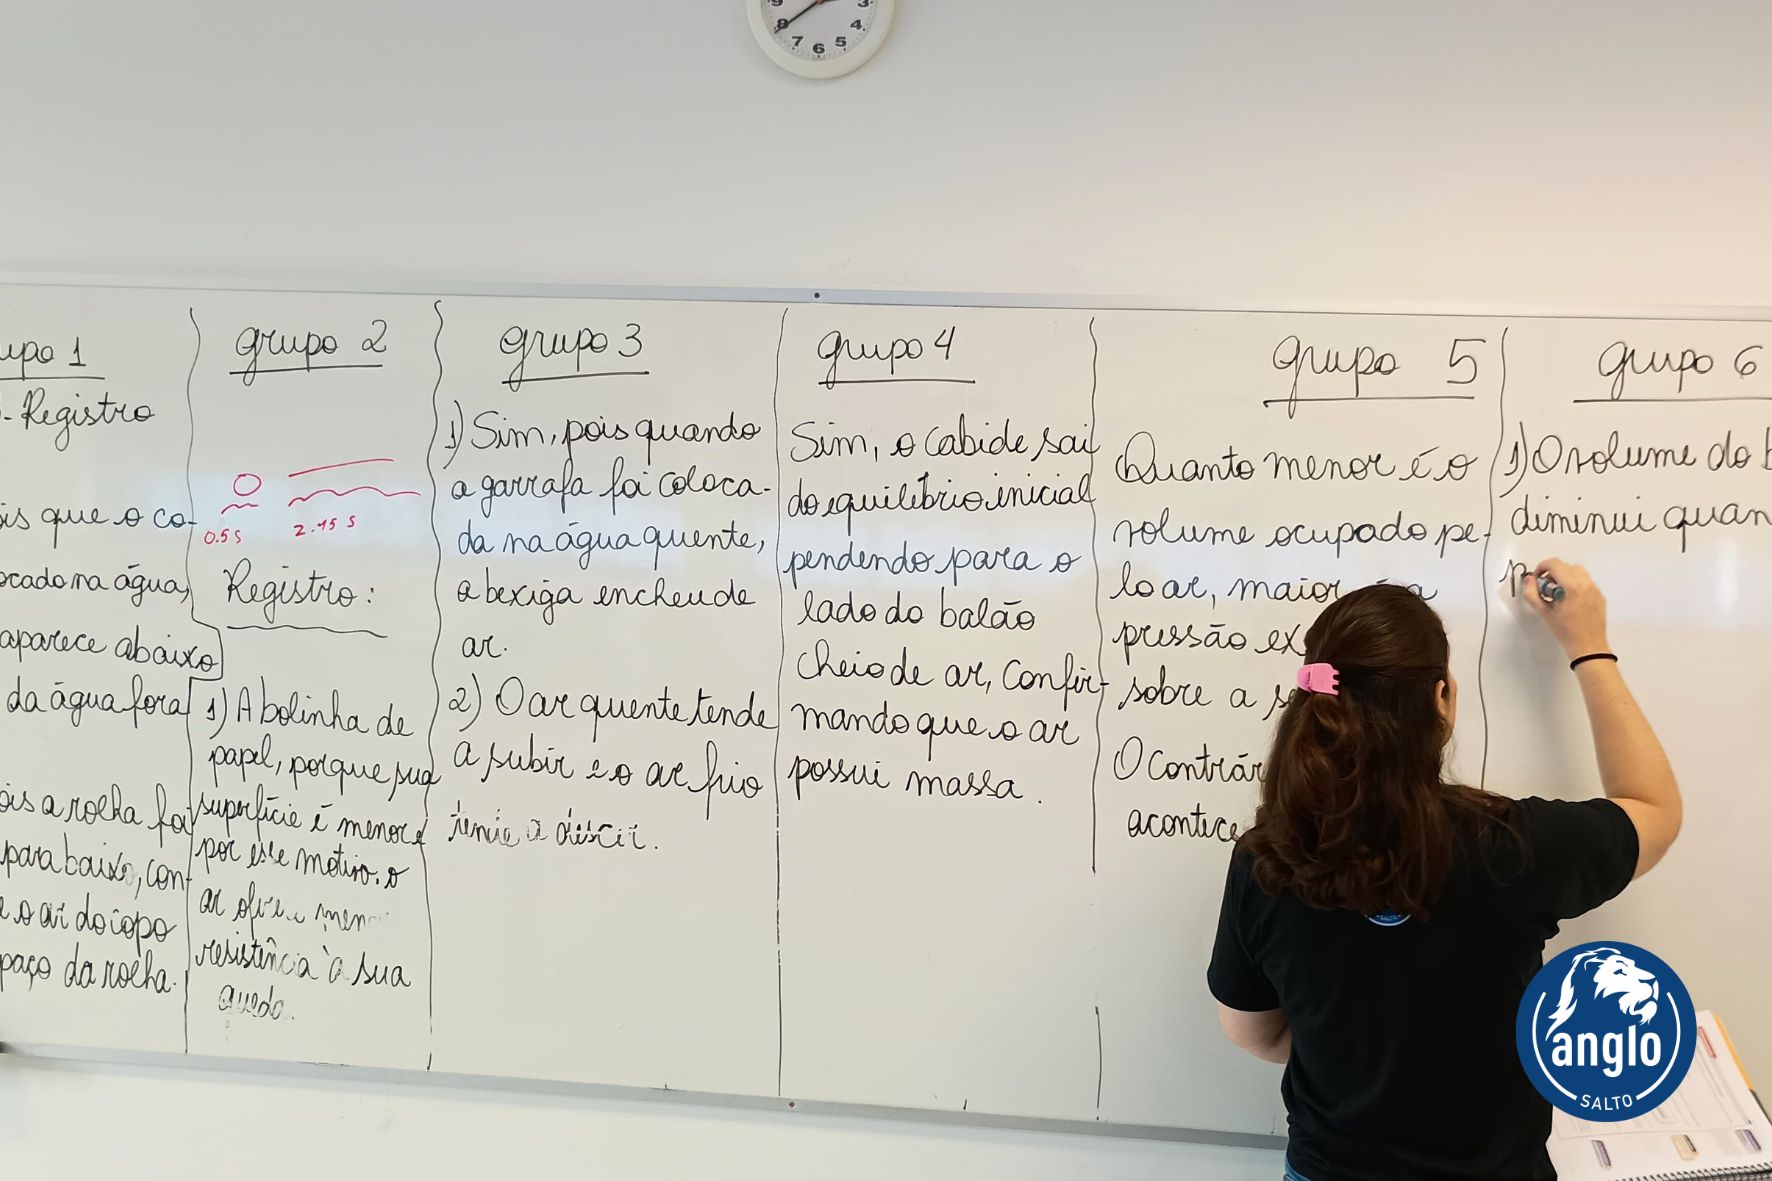 9
3
8
4
7
6
5
upo 1
- Registro
is que o co-
ocado na água,
aparece abaixo
da água fora
ois a rolha foi
para baixo, con-
e o ar do copo
paço da rolha.
grupo 2
0.5 s
2.15 s
Registro:
1) A bolinha de
papel, porque sua
superfície é menor e
por esse motivo, o
ar menor
resistência à sua
queda.
grupo 3
1) Sim, pois quando
a garrafa foi coloca-
da na água quente,
a bexiga encheu de
ar.
2) O ar quente tende
a subir e o ar frio
tende a descer.
grupo 4
Sim, o cabide sai
do equilíbrio inicial
pendendo para o
lado do balão
cheio de ar, confir-
mando que o ar
possui massa.
grupo 5
Quanto menor é o
volume ocupado pe-
lo ar, maior a
pressão ex
sobre a
O contrár
acontece
grupo 6
1) O volume do b
diminui quan
p
anglo
SALTO